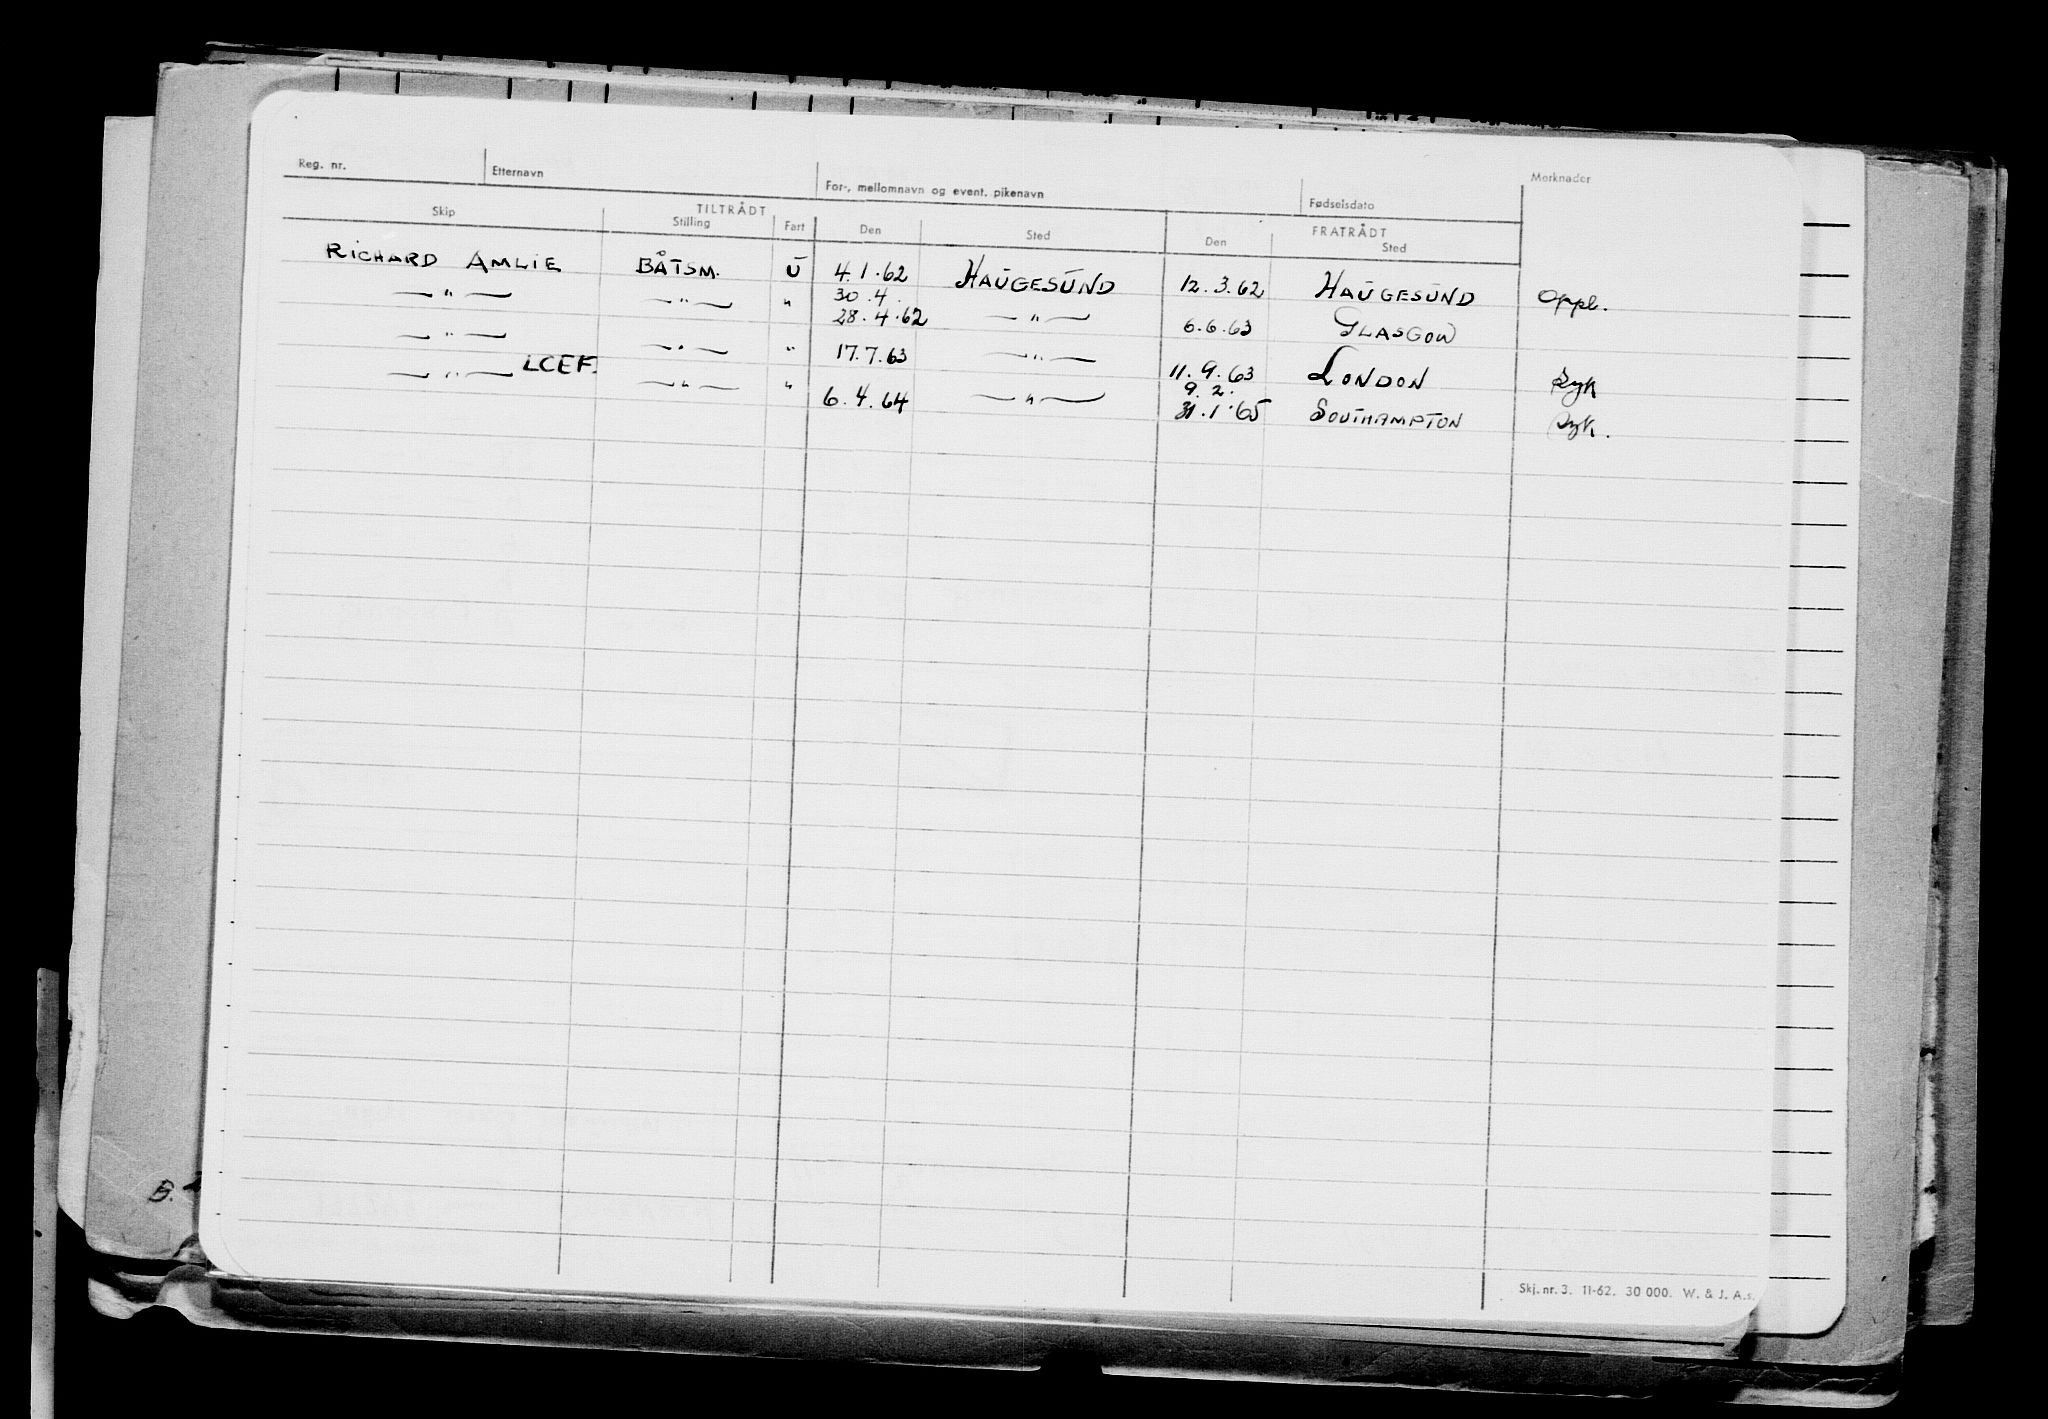 Reg. nr. Etternavn For-, mellomnavn og event. pikenavn Fødselsdato Merknader
TILTRÅDT FRATRÅDT
Skip Stilling Fart Den Sted Den Sted
RICHARD AMLIE BÅTSM. U 4.1.62 HAUGESUND 12.3.62 HAUGESUND Oppl.
—"— —"— " 30.4. 28.4.62 —"— 6.6.63 GLASGOW
—"— —"— " 17.7.63 —"— 11.9.63 LONDON Syk
—"— LCEF. —"— " 6.4.64 —"— 9.2. 31.1.65 SOUTHAMPTON Syk.
B.
Skj. nr. 3. 11-62. 30 000. W. & J. A.s.